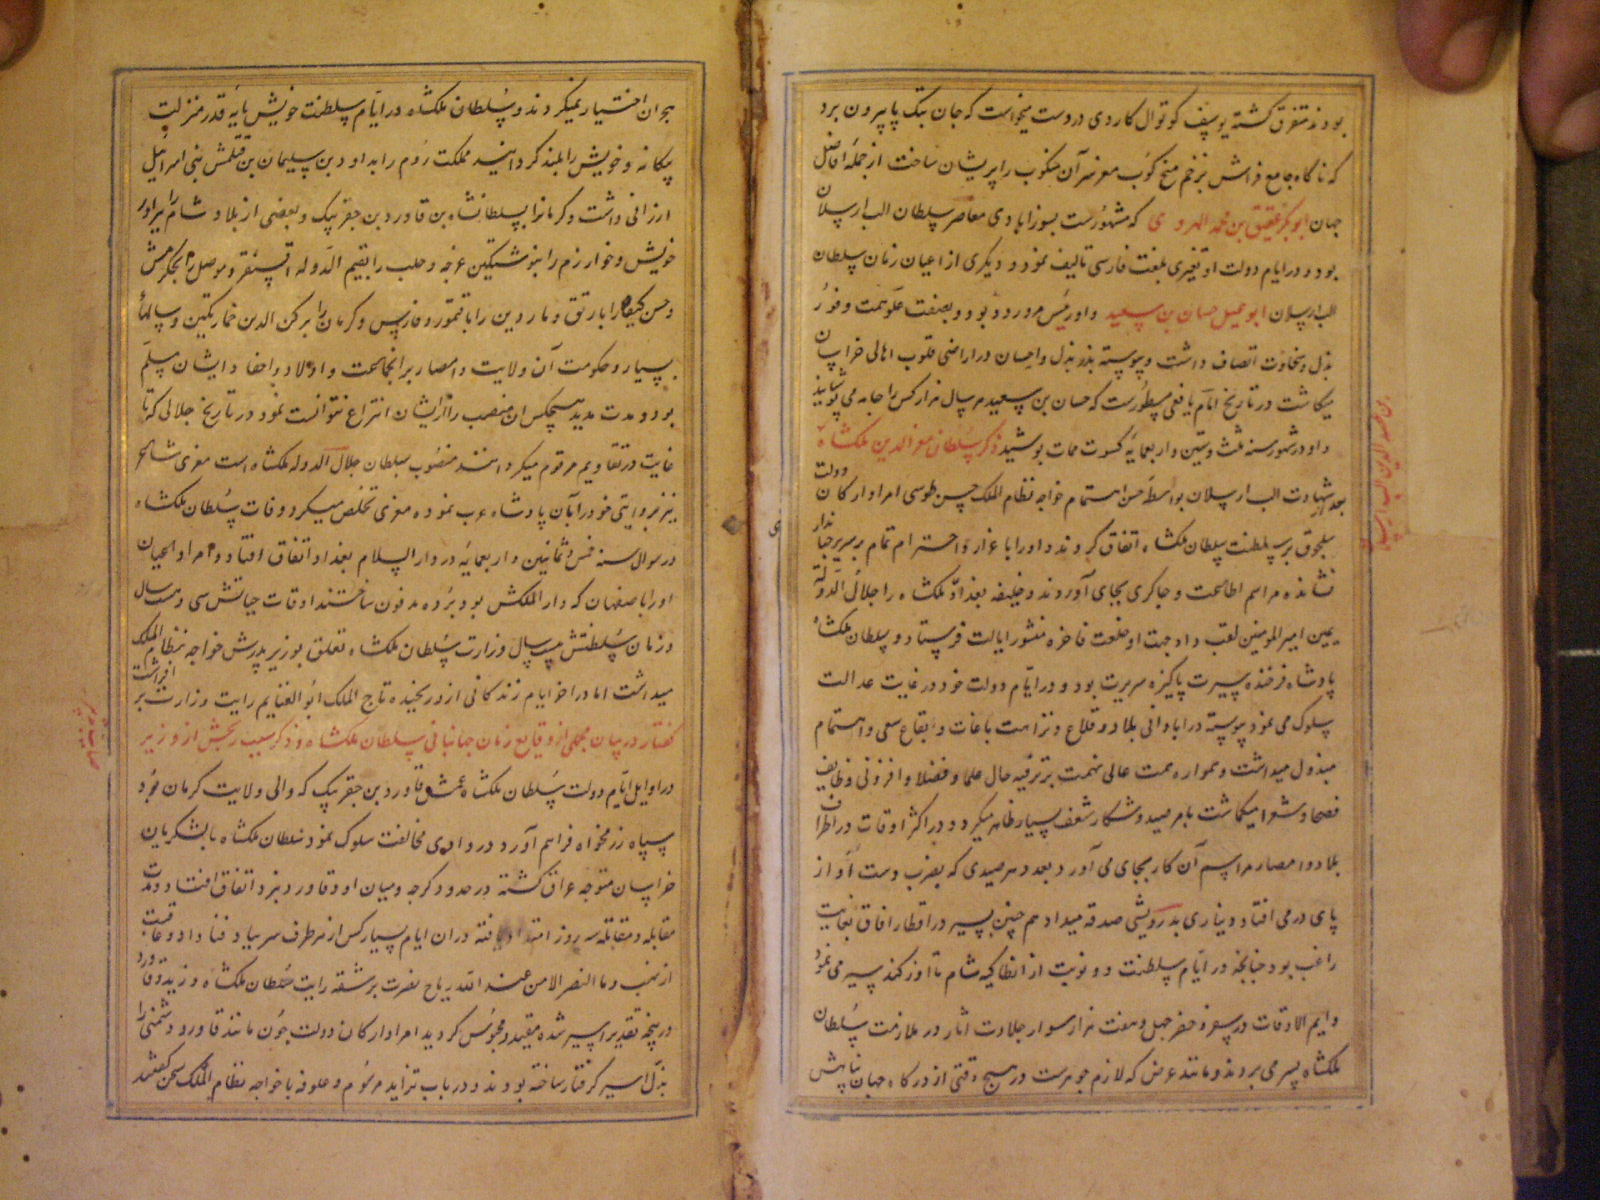 بودند متفرق گشته یوسف کوتوال کاردی در دست میخواست که جان بتک پا بیرون برد
که ناگاه جامع فراش بزخم میخ کوب مغز سر آن منکوب را پریشان ساخت از جمله افاضل
جهان ابو بکر عتیق بن محمد الهروی که مشهورست بسورابادی معاصر سلطان الب ارسلان
بود و در ایام دولت او تفسیری بلغت فارسی تالیف نمود و دیگری از اعیان زمان سلطان
الب ارسلان حسان بن سعید و او رئیس مرورود بود و بصفت علو همت و وفور
بذل و سخاوت اتصاف داشت و پیوسته بذر بذل و احسان در اراضی قلوب اهالی خراسان
میکاشت در تاریخ امام یافعی مسطورست که حسان بن سعید هر سال هزار کس را جامه می پوشانید
و او در شهور سنه ثلث و ستین و اربعمایه کسوت ممات پوشید ذکر سلطان معز الدین ملکشاه
بعد شهادت الب ارسلان بواسطه حسن اهتمام خواجه نظام الملک حسن طوسی امرا و ارکان دولت
سلجوق بر سلطنت سلطان ملکشاه اتفاق کردند و او را با عزاز و احترام تمام بر سریر جهانداری
نشانده مراسم اطاعت و چاکری بجای آوردند و خلیفه بغداد ملکشاه را جلال الدوله
یمین امیر المومنین لقب داد جهت او خلعت فاخره منشور ایالت فرستاد و سلطان ملکشاه
پادشاه فرخنده سیرت پاکیزه سریرت بود و در ایام دولت خود در غایت عدالت
سلوک می نمود پیوسته در ابادانی بلاد و قلاع و نزاهت باغات و بقاع سعی و اهتمام
مبذول میداشت و همواره همت عالی نهمت بر ترفیه حال علما و فضلا و افزونی وظایف
فصحا و شعرا میکماشت بامر صید و شکار شعف بسیار ظاهر میکرد و در اکثر اوقات در اطراف
بلاد و امصار مراسم آن کار بجای می آورد بعد هر صیدی که بضرب دست او از
پای در می افتاد دیناری بدرویشی صدقه میداد هم چنین بسیر در اقطار افاق بغایت
راغب بود چنانچه در ایام سلطنت دو نوبت از انطاکیه شام تا اوزکند سیر می نمود
و ایم الاوقات در سفر و حضر چهل و هفت هزار سوار جلادت اثار در ملازمت سلطان
ملکشاه بسر می بردند و مانند عرض که لازم جوهرست در هیچ وقتی از درکاه جهان پناهش
هجران اختیار نمیکردند و سلطان ملکشاه در ایام سلطنت خویش پایه قدر منزلت
بیکانه و خویش را بلند کردانید مملکت روم را بداود بن سلیمان بن قتلمش بنی اسرائیل
ارزانی داشت و کرمانرا بسلطانشاه بن قاورد بن جقر بیک و بعضی از بلاد شام را ببرادر
خویش و خوارزم را بنوشتکین غرجه و حلب را بقسیم الدوله اقسنقر و موصل را بجکرمش
و حسن کیفا را بارتق و ماردین را و فارس و کرمان را برکن الدین خمارتکین و سالهاء
بسیار و حکومت آن ولایت و امصار بر انجماعت و اولاد و احفاد ایشان مسلم
بود و مدت مدید هیچکس ان منصب را از ایشان انتزاع نتوانست نمود و تاریخ جلالی که تا
غایت در تقاویم مرقوم میکردانند منصوب بسلطان جلال الدوله ملکشاه است معزی شاعر
نیز بروایتی خود را بان پادشاه منسوب نموده معزی تخلص میکرد وفات سلطان ملکشاه
در شوال سنه خمس و ثمانین و اربعمایه در دار السلام بغداد اتفاق افتاد و امرا و اعیان
او را باصفهان که دار الملکش بود برده مدفون ساختند اوقات حیاتش سی و هشت سال
و زمان سلطنتش بیست سال وزارت سلطان ملکشاه تعلق بوزیر پدرش خواجه نظام الملک
میداشت اما در اخر ایام زندکانی از و رنجیده تاج الملک ابو الغنایم رایت وزارت بر افراشت
کفتار در بیان مجملی از وقایع زمان جهانبانی سلطان ملکشاه و ذکر سبب رنجش از وزیر
در اوایل ایام دولت سلطان ملکشاه عمش قاورد بن جقر بیک که والی ولایت کرمان بود
سپاه رزمخواه فراهم آورد در وادی مخالفت سلوک نمود سلطان ملکشاه با لشکریان
خراسان متوجه عراق کشته در حدود کرجه میان او و قاورد نبرد اتفاق افتاد و مدت
مقابله و مقاتله سه روز امتداد یافته در ان ایام بسیار کس از هر طرف سر بباد فنا داد و عاقبت
از مهب و ما النصر الا من عند الله ریاح نصرت بر شقه رایت سلطان ملکشاه وزید و قاورد
در پنجه تقدیر اسیر شده مقید و محبوس کردید امرا و ارکان دولت چون مانند قاورد دشمنی را
بزل اسیر کرفتار ساخته بودند و در باب تزاید مرسوم و علوفه با خواجه نظام الملک سخن کفتند